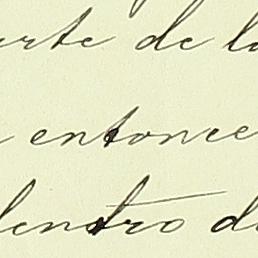 arte de la
entonce
dentro d